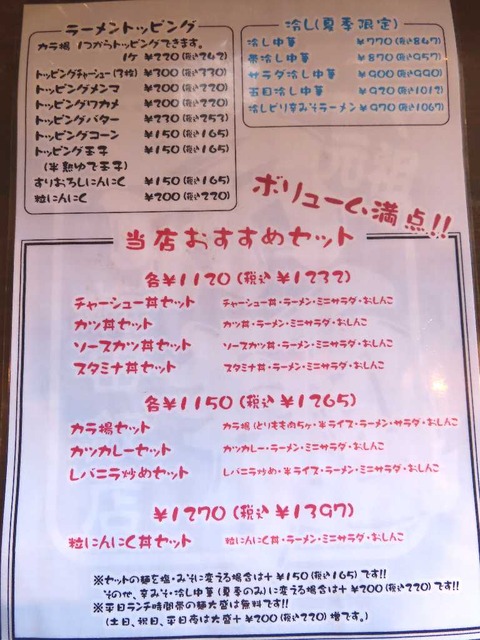 ラーメントッピング
カラ揚 1つからトッピングできます。
1ケ ¥220(税込242)
トッピングチャーシュー(2枚) ¥300(税込330)
トッピングメンマ ¥200(税込220)
トッピングワカメ ¥200(税込220)
トッピングバター ¥230(税込253)
トッピングコーン ¥150(税込165)
トッピング玉子 ¥150(税込165)
(半熟ゆで玉子)
すりおろしにんにく ¥150(税込165)
粒にんにく ¥200(税込220)
冷し(夏季限定)
冷し中華 ¥770(税込847)
帯冷し中華 ¥870(税込957)
サラダ冷し中華 ¥900(税込990)
五目冷し中華 ¥920(税込1012)
冷しピリ辛みそラーメン ¥970(税込1067)
ボリューム満点!!
当店おすすめセット
各¥1120(税込¥1232)
チャーシュー丼セット チャーシュー丼・ラーメン・ミニサラダ・おしんこ
カツ丼セット カツ丼・ラーメン・ミニサラダ・おしんこ
ソースカツ丼セット ソースカツ丼・ラーメン・ミニサラダ・おしんこ
スタミナ丼セット スタミナ丼・ラーメン・ミニサラダ・おしんこ
各¥1150(税込¥1265)
カラ揚セット カラ揚(とりもも肉5ヶ・半ライス・ラーメン・サラダ・おしんこ
カツカレーセット カツカレー・ラーメン・ミニサラダ・おしんこ
レバニラ炒めセット レバニラ炒め・半ライス・ラーメン・ミニサラダ・おしんこ
¥1270(税込¥1397)
粒にんにく丼セット 粒にんにく丼・ラーメン・ミニサラダ・おしんこ
※セットの麺を塩・みそに変える場合は+¥150(税込165)です!!
その他、辛みそ・冷し中華(夏季のみ)に変える場合は+¥200(税込220)です!!
※平日ランチ時間帯の麺大盛は無料です!!
(土日、祝日、平日夜は大盛+¥200(税込220)増です。)